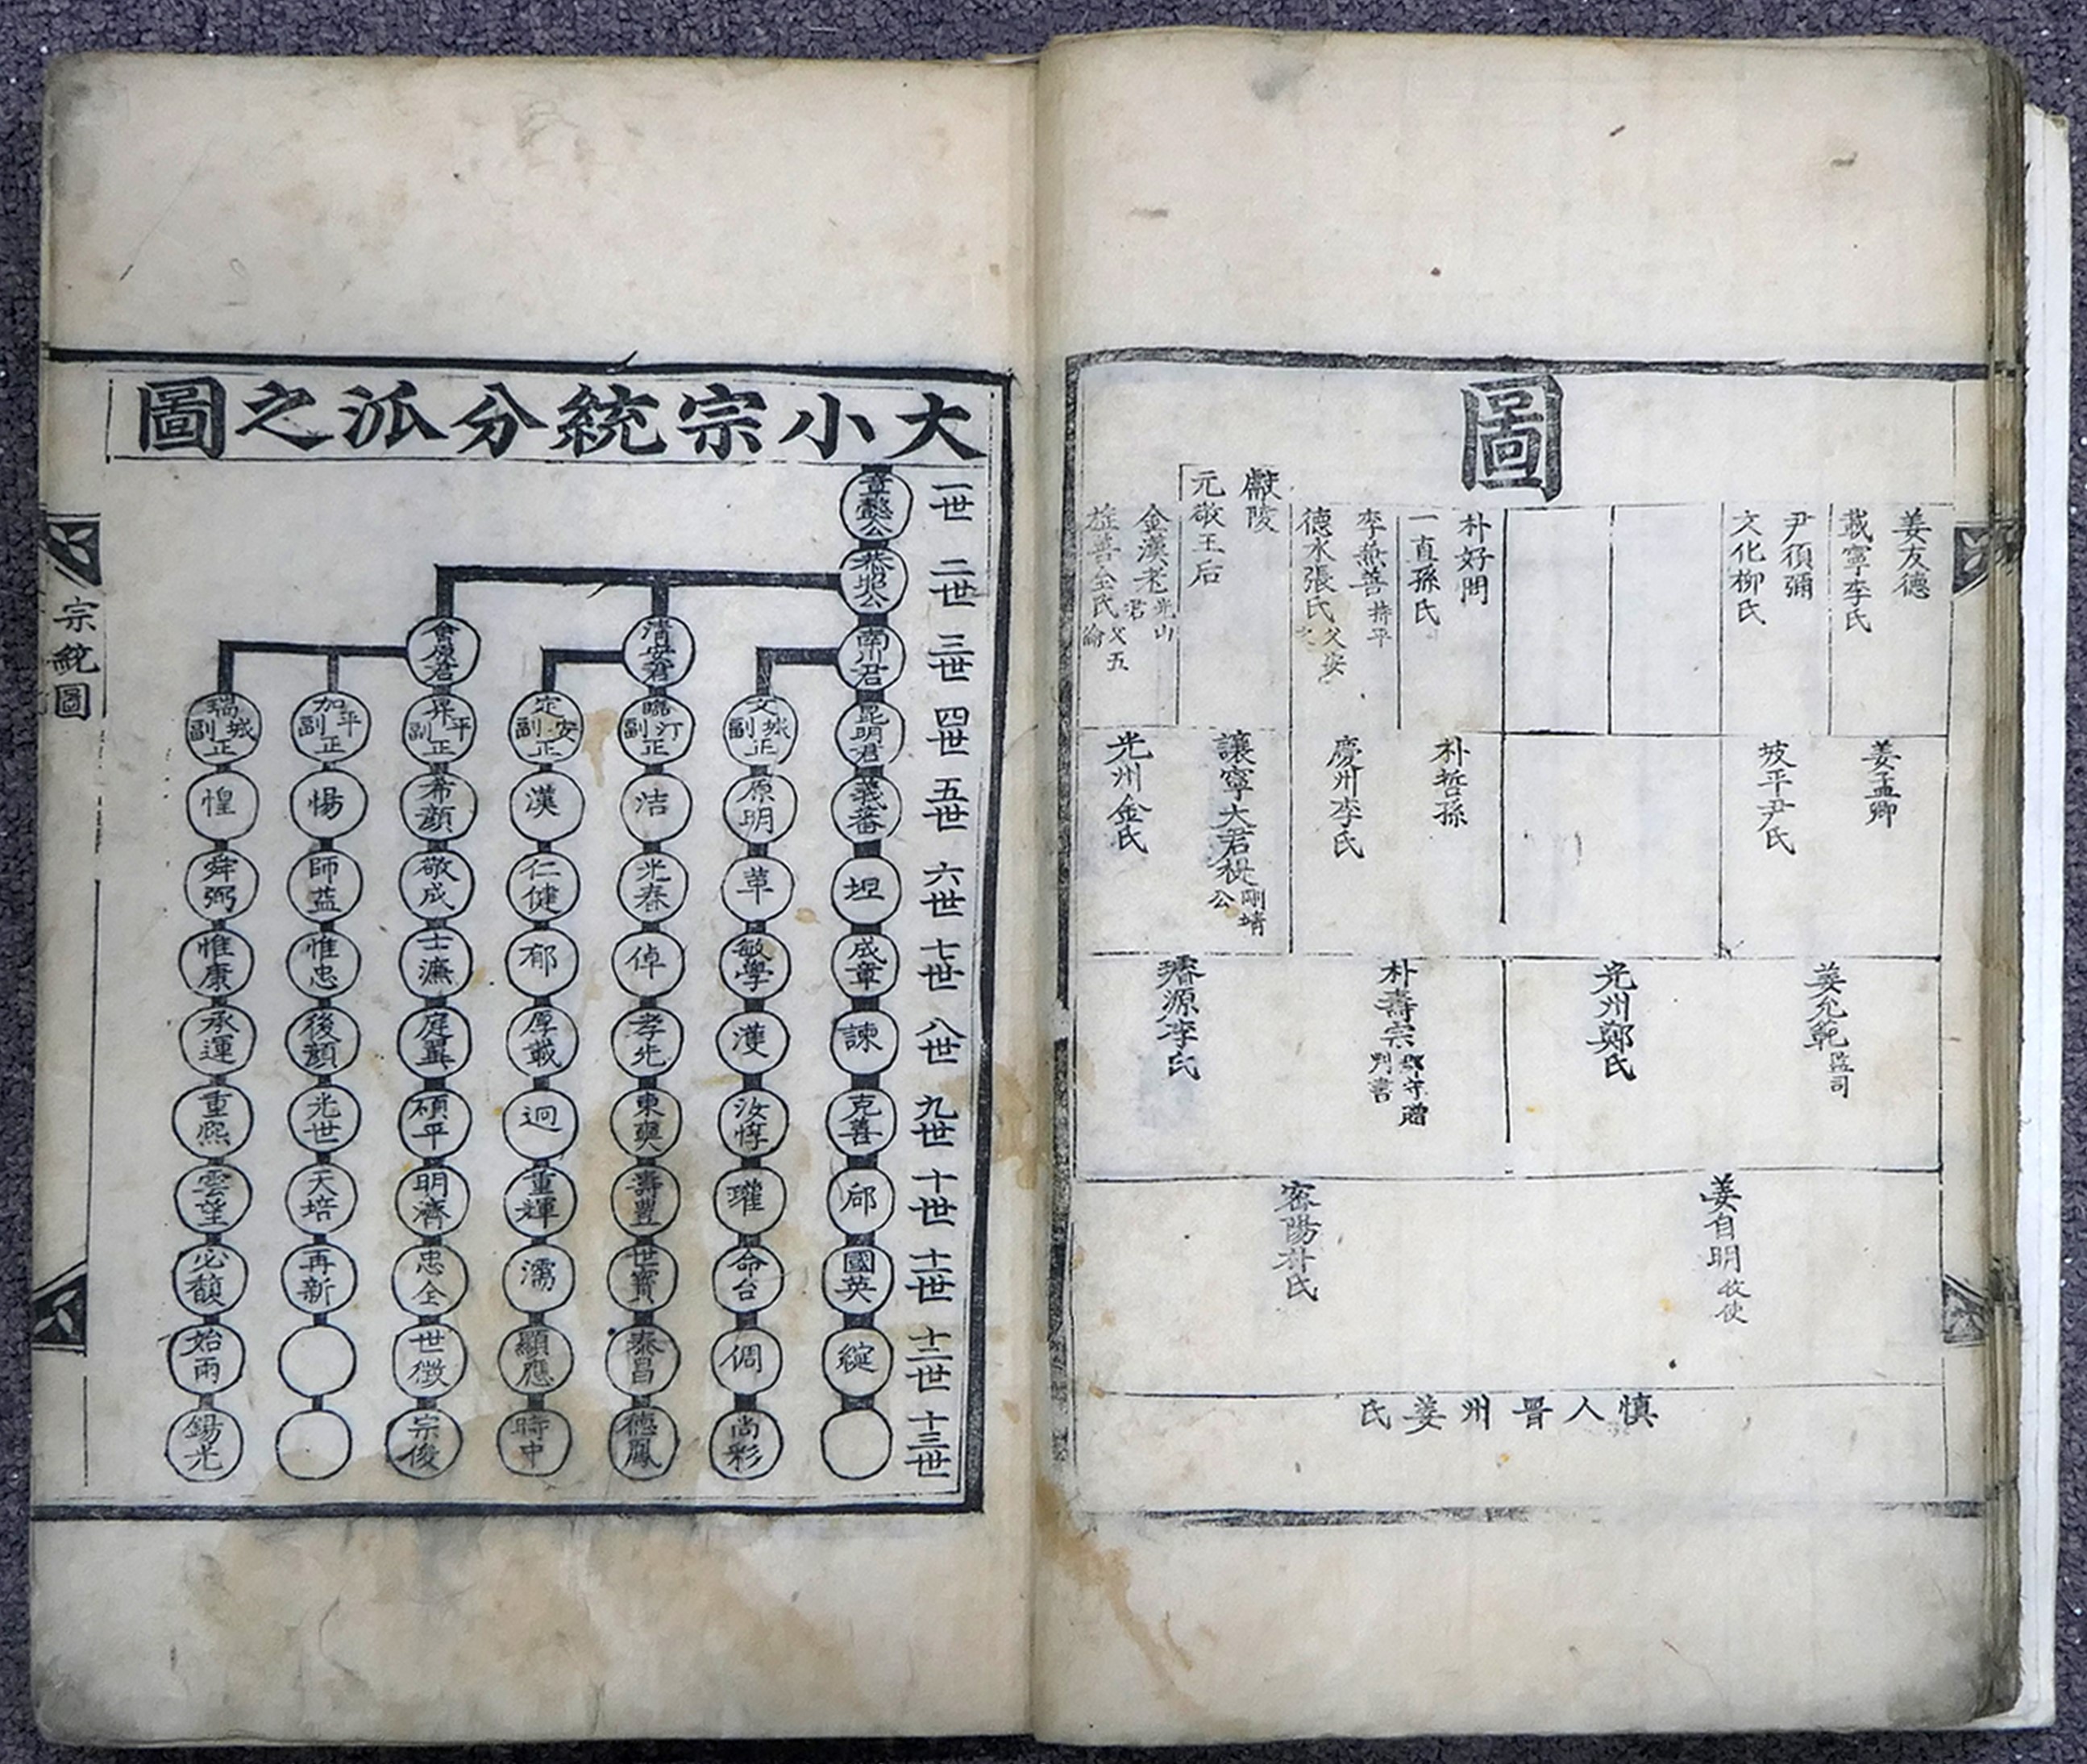 圖
姜友德
載寧李氏
尹須彌
文化柳氏
朴好問
一直孫氏
李兼善 持平
德水張氏
獻陵
元敬王后
金漢老 光山君
姜孟卿
坡平尹氏
朴哲孫
慶州李氏
讓寧大君禔 剛靖公
光州金氏
姜允範 監司
光州鄭氏
朴壽宗 郡守贈判書
璿源李氏
姜自明 牧使
密陽朴氏
慎人晋州姜氏
大小宗統分派之圖
一世 章懿公
二世 恭昭公
三世 南川君 清安君 會原君
四世 昆明君 文城副正 臨汀副正 定安副正 昇平副正 加平副正 瑞城副正
五世 義蕃 原明 洁 漢 希顔 惕 惶
六世 坦 革 光春 仁健 敬成 師益 舜弼
七世 成章 敏學 倬 郁 士濂 惟忠 惟康
八世 諫 漢 孝先 厚載 庭翼 後顔 承運
九世 克善 汝惇 東奭 迥 碩平 光世 重熙
十世 邟 瓘 壽豊 重輝 明濟 天培 雲望
十一世 國英 命台 世寶 濡 忠全 再新 必馥
十二世 綻 倜 泰昌 顯應 世徵 始雨
十三世 尚彩 德鳳 時中 宗俊 錫光
宗統圖